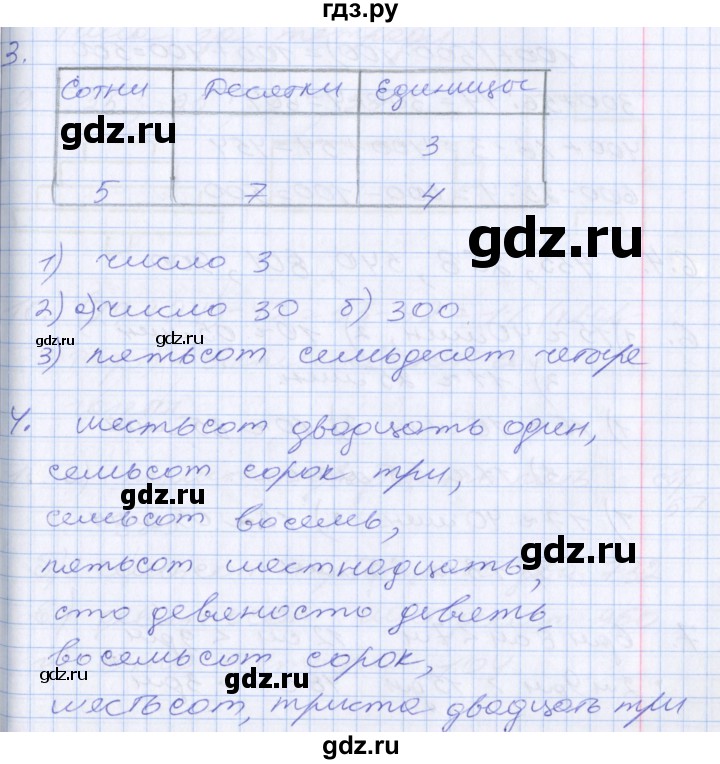 гдз.ру
3.
Сотни Десятки Единицы
gdz.ru
3
5 7 4
gdz.ru
1) число 3
2) а) число 30 б) 300
gdz.ru
gdz.ru
3) пятьсот семьдесят четыре
4. шестьсот двадцать один,
семьсот сорок три,
gdz.ru
семьсот восемь,
gdz.ru
пятьсот шестнадцать,
сто девяносто девять,
gdz.ru
восемьсот сорок,
gdz.ru
gdz.ru
шестьсот, триста двадцать три
gdz.ru